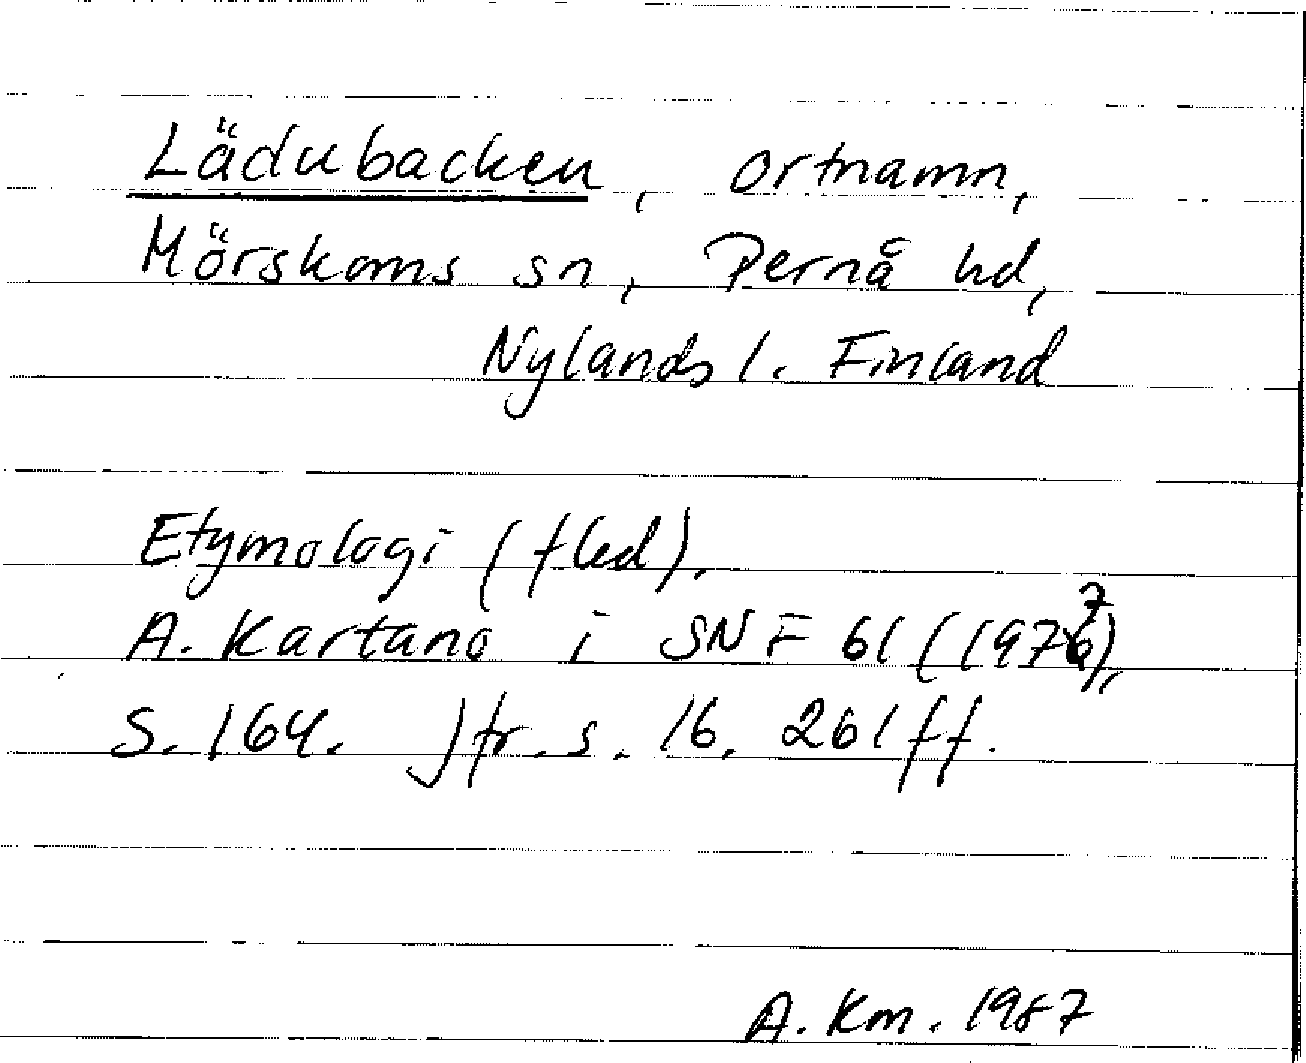 Lädubacken, ortnamn,
Mörskoms sn, Pernå hd,
Nylands l. Finland
Etymologi (fled).
A. Kartano i SNF 61 (1977),
S. 164. Jfr. s. 16. 261 ff.
A. Km. 1987